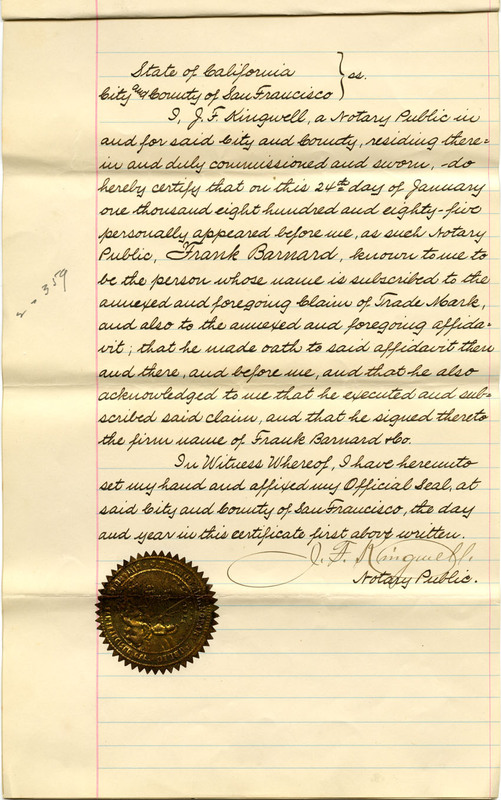 State of California } ss.
City and County of San Francisco
I, J. F. Kingwell, a Notary Public in
and for said City and County, residing there-
in and duly commissioned and sworn, do
hereby certify that on this 24th day of January
one thousand eight hundred and eighty-five
personally appeared before me, as such Notary
Public, Frank Barnard, known to me to
be the person whose name is subscribed to the
annexed and foregoing Claim of Trade Mark,
and also to the annexed and foregoing affida-
vit; that he made oath to said affidavit then
and there, and before me, and that he also
acknowledged to me that he executed and sub-
scribed said claim, and that he signed thereto
the firm name of Frank Barnard & Co.
In Witness Whereof, I have hereunto
set my hand and affixed my Official Seal, at
said City and County of San Francisco, the day
and year in this certificate first above written.
J. F. Kingwell
Notary Public.
359